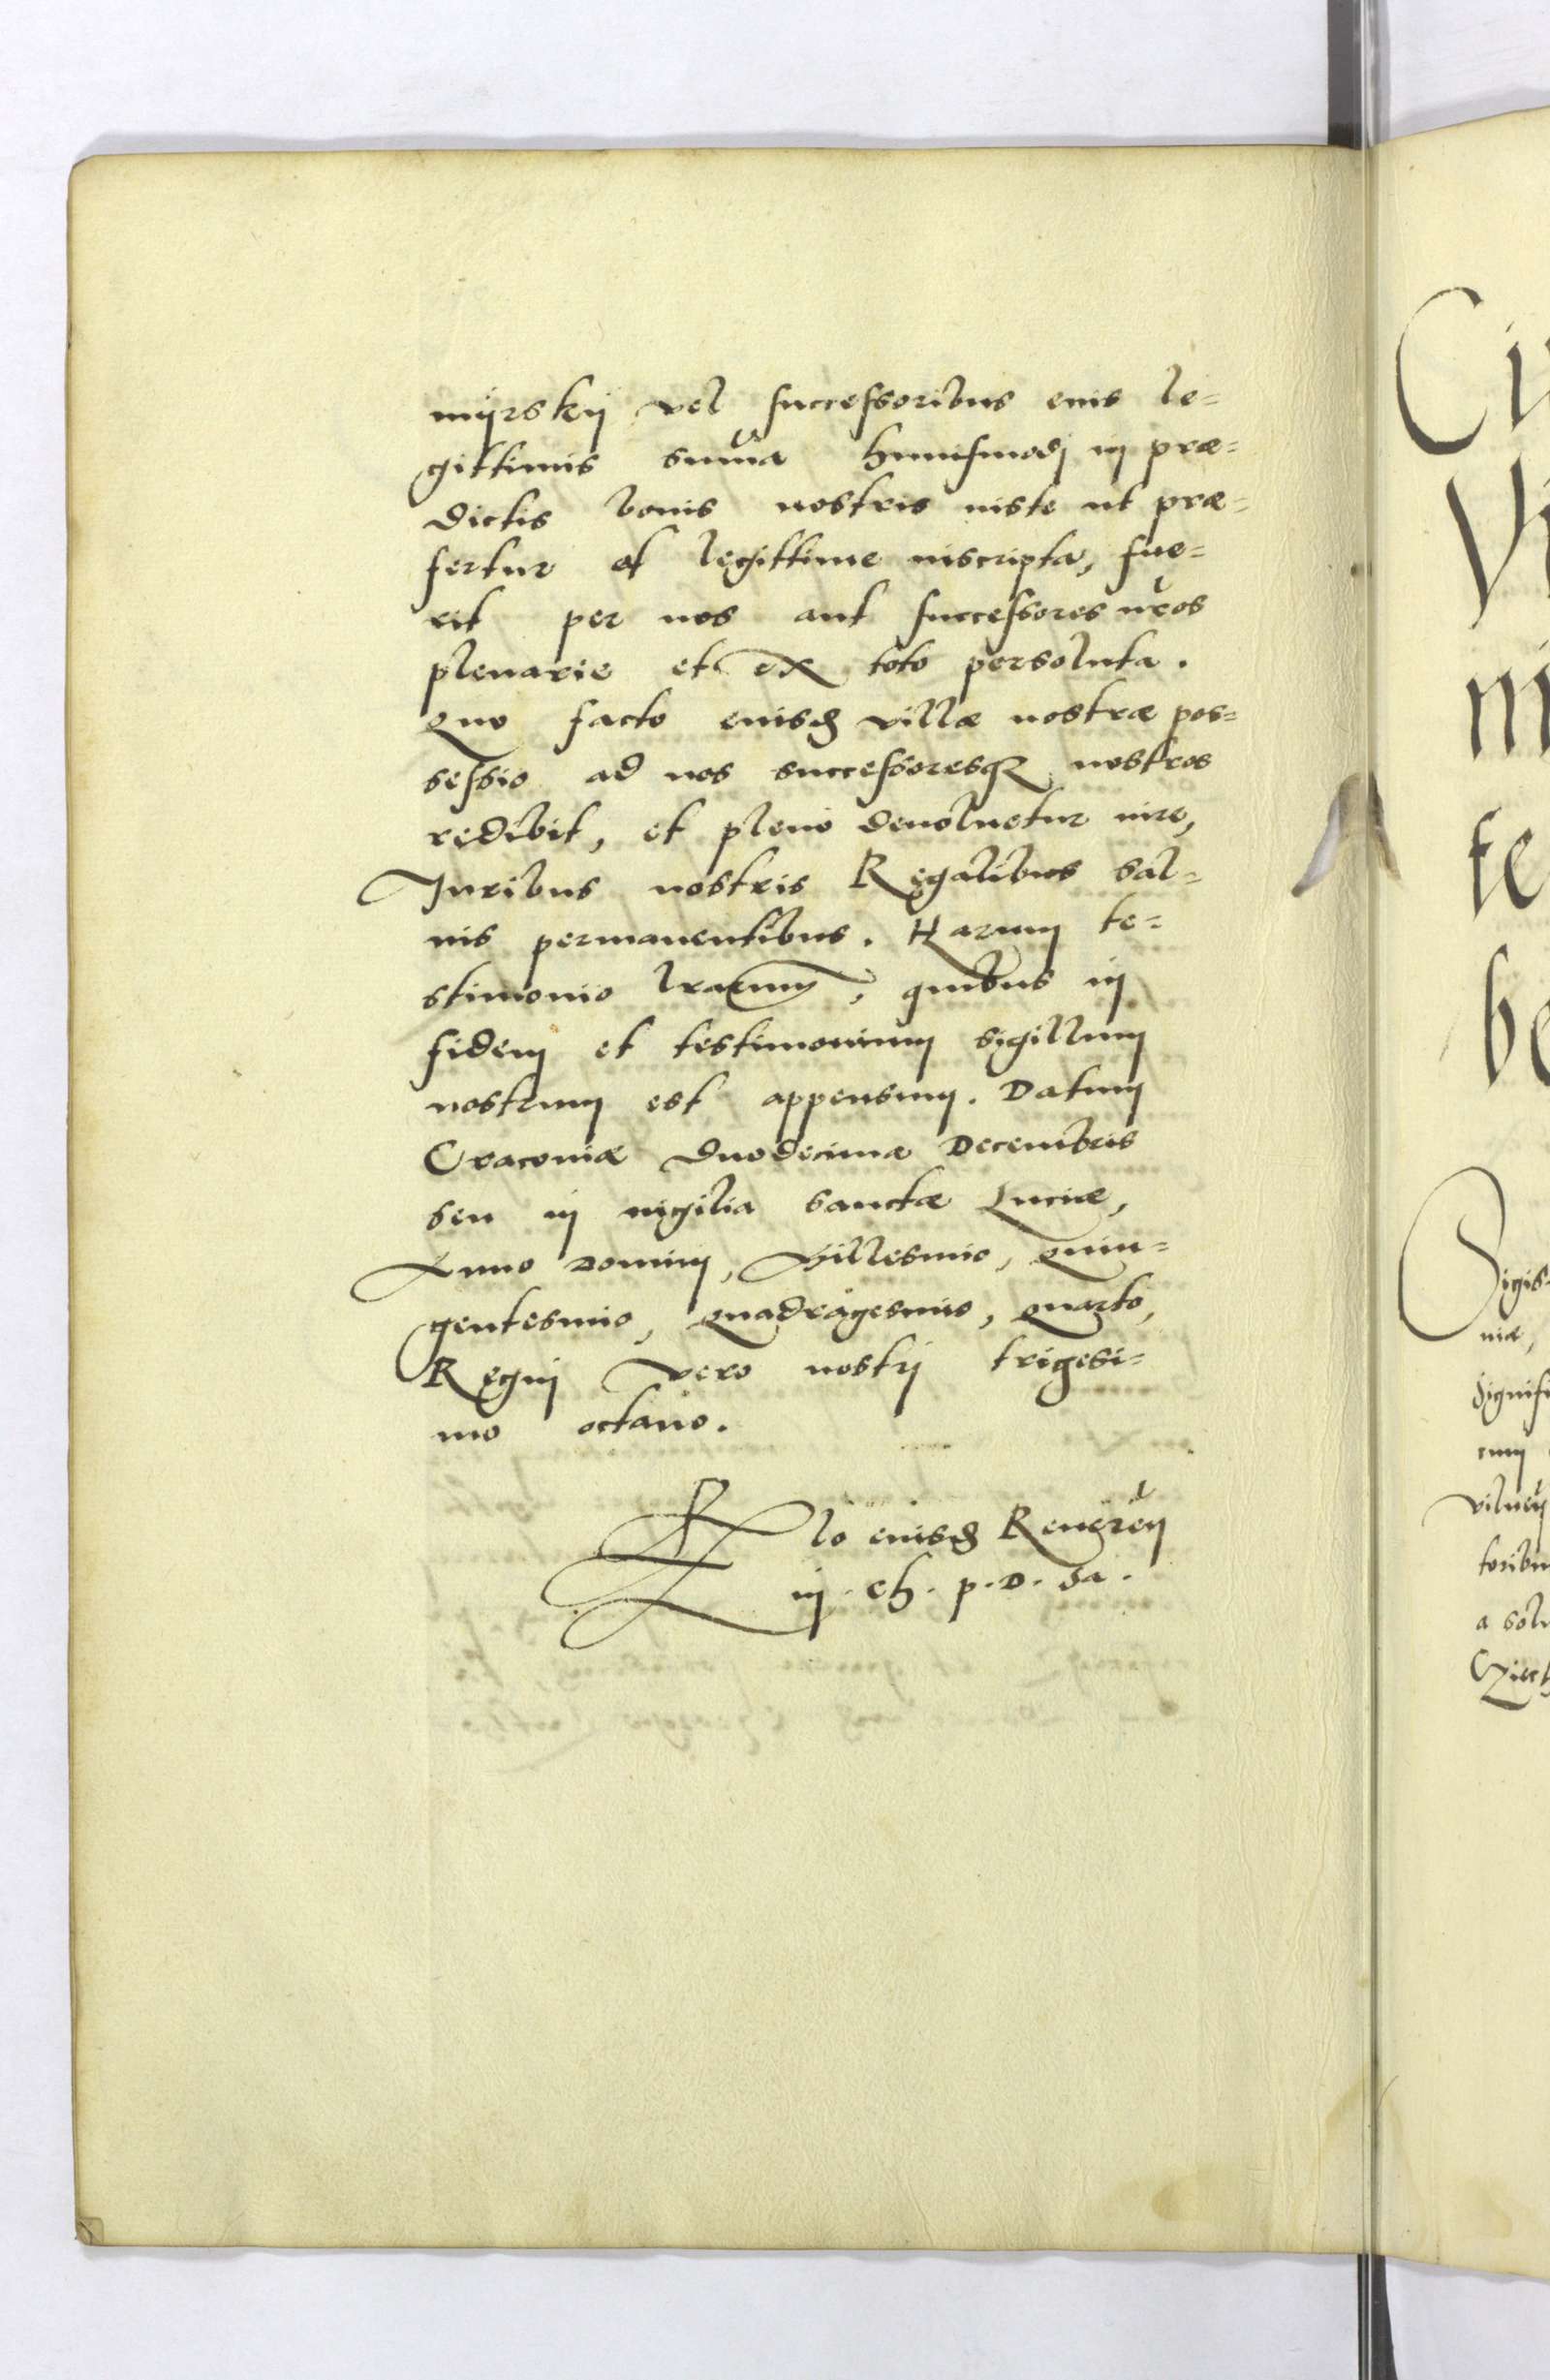 mijrskij vel successoribus eius le=
gittimis summa huiusmodj in præ=
dictis bonis nostris iuste ut præ=
fertur et legittime inscripta, fue=
rit per nos aut successores nros
plenarie et ex toto persoluta.
Quo facto eiusd villæ nostræ pos=
sessio ad nos successoresq nostros
redibit, et pleno deuoluetur iure,
Juribus nostris Regalibus sal=
uis permanentibus. Harum te=
stimonio lrarum, quibus in
fidem et testimonium sigillum
nostrum est appensum. Datum
Cracouiæ duodecima Decembris
seu in uigilia sanctæ Luciæ,
Anno Dominj, Millesimo, Quin=
gentesimo, Quadragesimo, Quarto,
Regnj vero nostrj trigesi=
mo octauo.
Rlo eiusd Reueren
in. ch. p. D. Sa.
Ci
Vi
ni
te
be
Sigis
niæ,
signifi
cum
vilnen
toribu
a solu